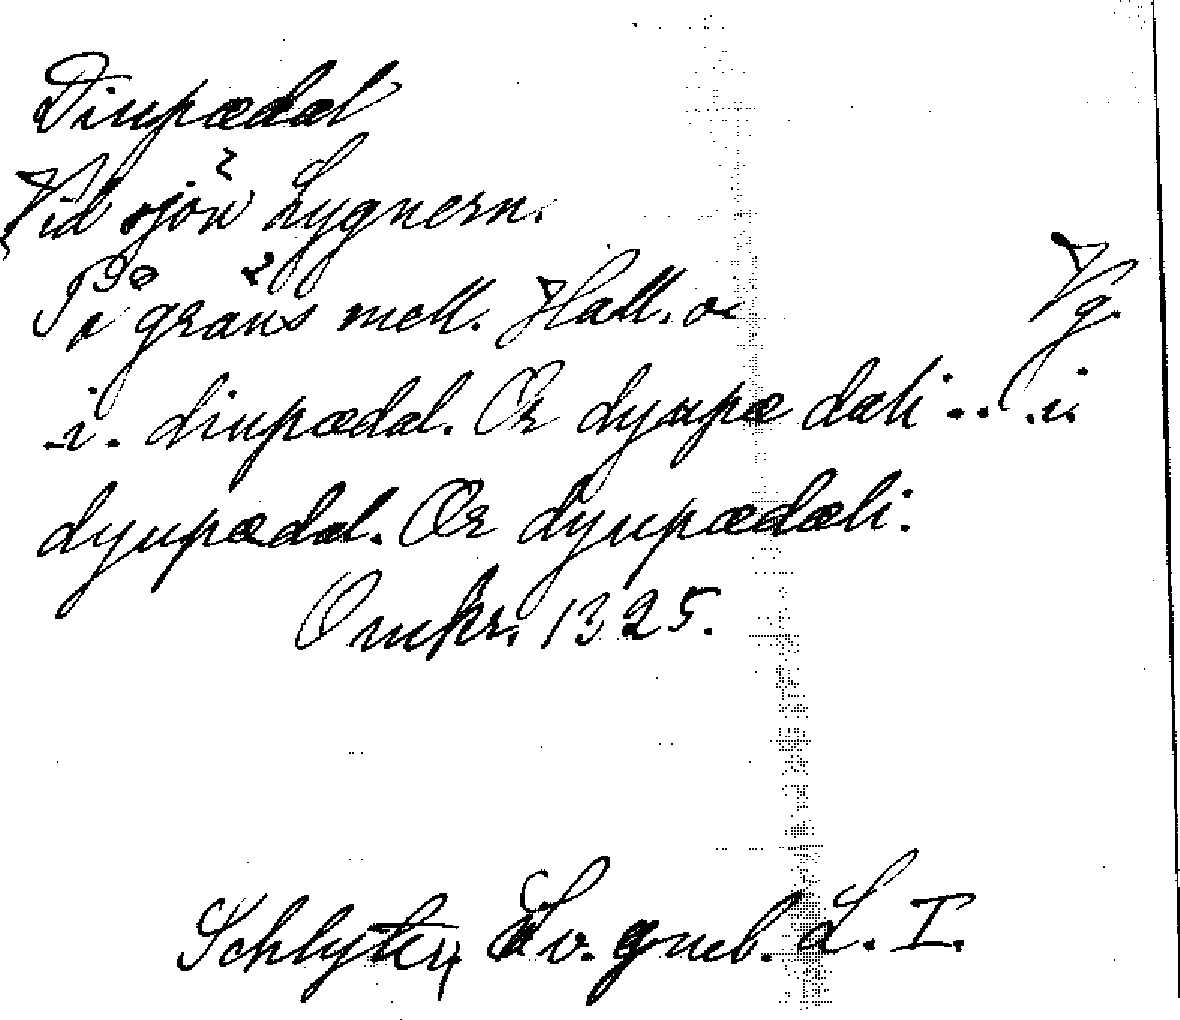 Diupædal
Vid sjön Lygnern.
På gräns mell. Hall. o. Vg.
i. diupædal. Or dyupædali... i
dyupædal. Or dyupædæli.
Omkr. 1325.
Schlyter, Sv. gml. L. I.